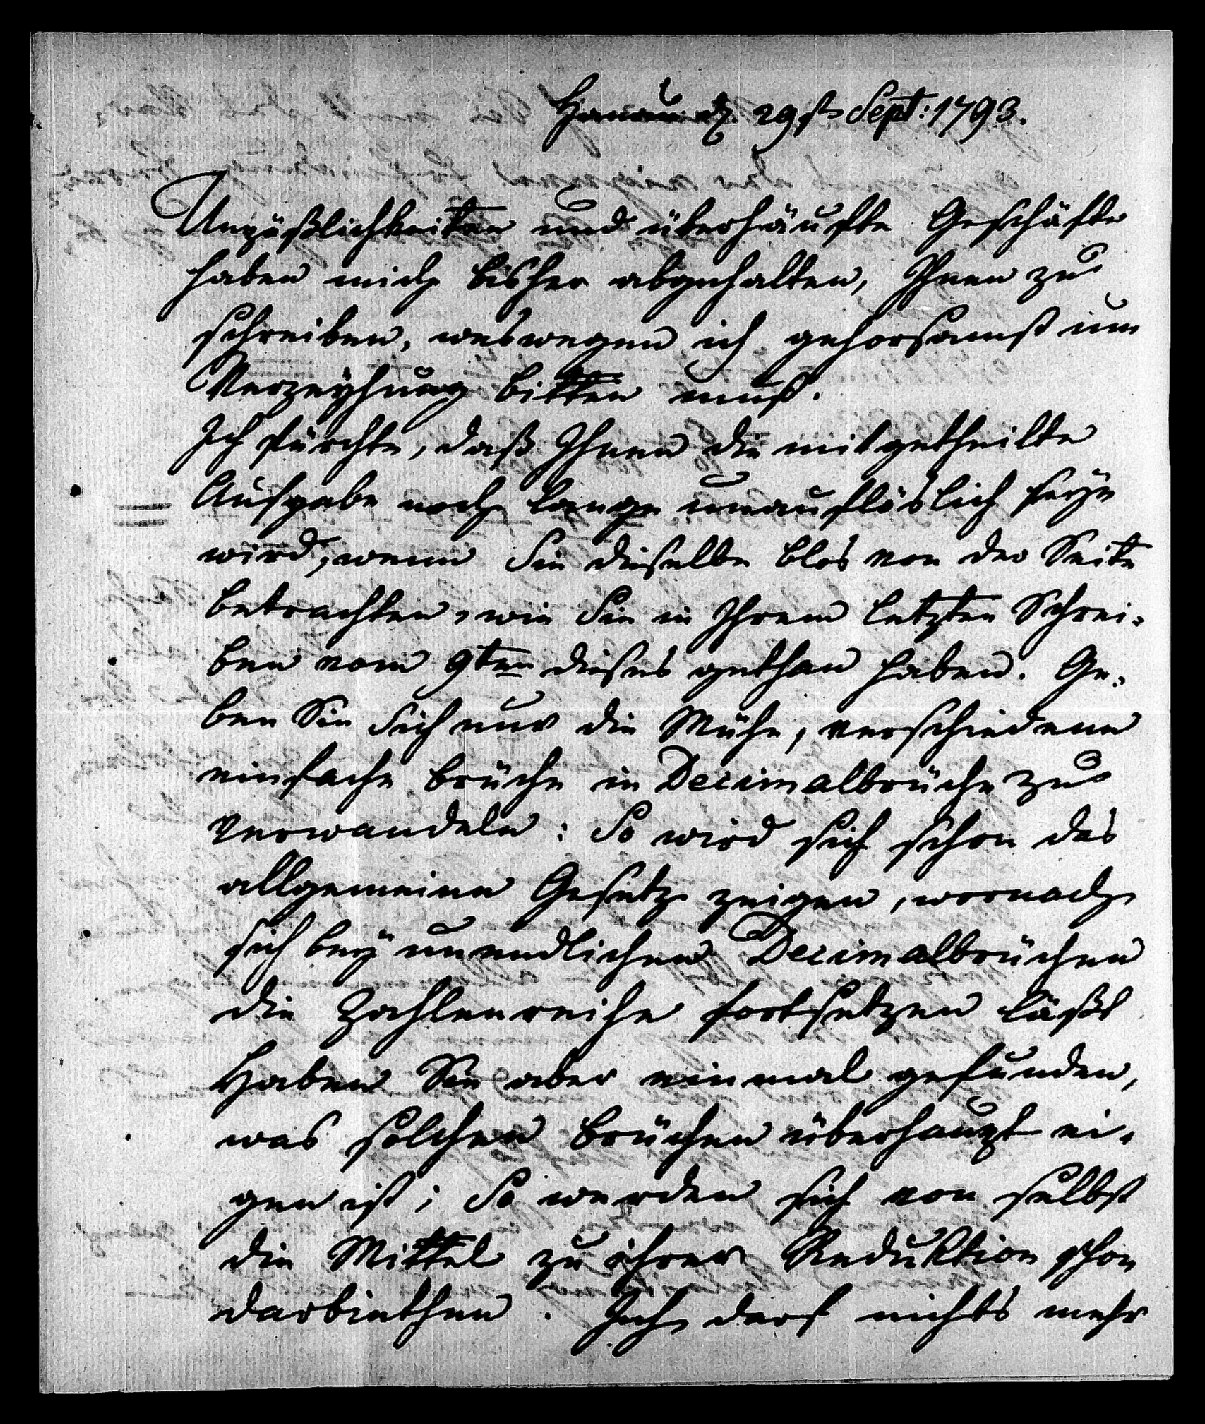 Hanau d. 29st Sept: 1793.
Unpäßlichkeiten und überhäufte Geschäfte
haben mich bisher abgehalten, Ihnen zu
schreiben, weswegen ich gehorsamst um
Verzeyhung bitten muß.
Ich fürchte, daß Ihnen die mitgetheilte
Aufgabe noch lange unauflöslich seyn
wird, wenn Sie dieselbe blos von der Seite
betrachten, wie Sie in Ihrem letzten Schrei-
ben vom 9ten dieses gethan haben. Ge-
ben Sie Sich nur die Mühe, verschiedene
einfache Brüche in Decimalbrüche zu
verwandeln: So wird sich schon das
allgemeine Gesetz zeigen, wornach
sich bey unendlichen Decimalbrüchen
die Zahlenreihe fortsetzen läßt
Haben Sie aber einmal gefunden,
was solchen Brüchen überhaupt ei-
gen ist; So werden sich von selbst
die Mittel zu ihrer Reduktion schon
darbiethen. Ich darf nichts mehr